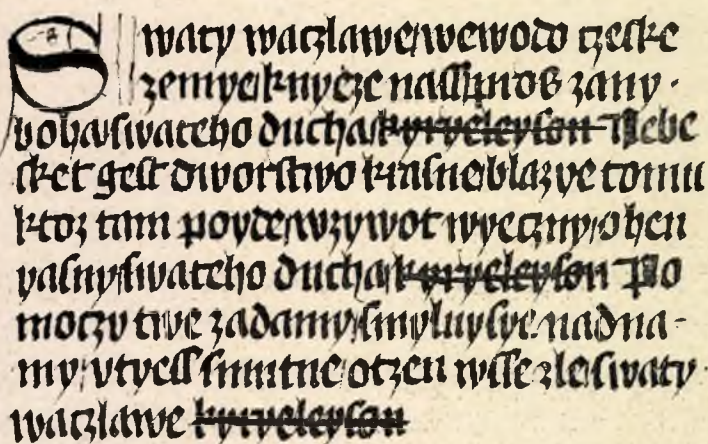 Swaty waczlawe/wewodo czeſke
zemye/knyeze naſſ/pros zany ·
boha/ſwateho ducha/kyryeleyſon Nebe
ſket geſt dworſtwo kraſne/blazye tomu
ktoz tam poyde/wzywot wyeczny/ohen
yaſny/ſwateho ducha/kyryeleyſon Po
moczy twe zadamy/ſmyluyſye/nadna-
my/vtyeſſ ſmutne/otzen wſſe zle/ſwaty
waczlawe kyryeleyſon